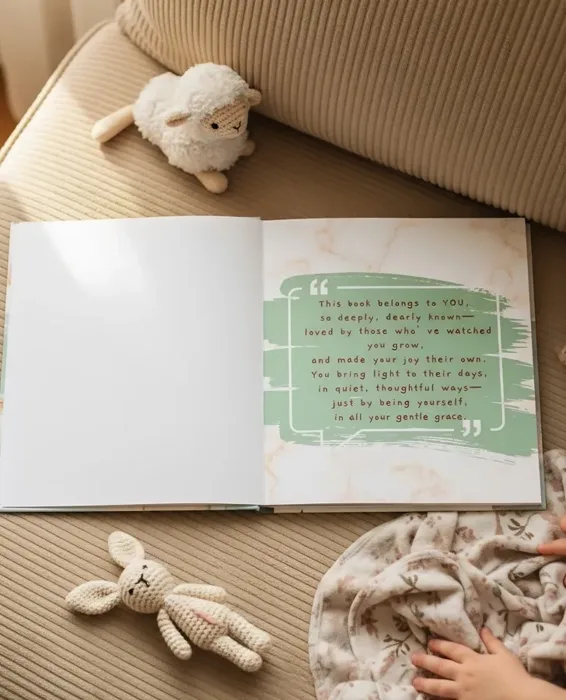 “
This book belongs to YOU,
so deeply, dearly known—
loved by those who' ve watched
you grow,
and made your joy their own.
You bring light to their days,
in quiet, thoughtful ways—
just by being yourself,
in all your gentle grace.
”